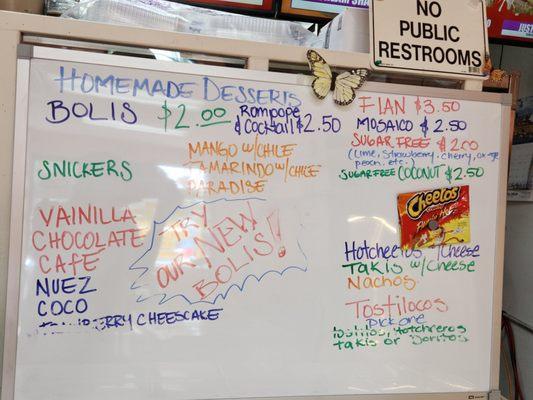 NO
PUBLIC
RESTROOMS
HOMEMADE DESSERTS
BOLIS $2.00
Rompope
& Cocktail $2.50
MANGO W/CHILE
TAMARINDO W/CHILE
PARADISE
SNICKERS
VAINILLA
CHOCOLATE
CAFE
NUEZ
COCO
CHEESCAKE
TRY
OUR NEW
BOLIS!
FLAN $3.50
MOSAICO $2.50
SUGAR FREE $2.00
(Lime, Strawberry, cherry, orange
peach, etc.)
SUGAR FREE COCONUT $2.50
Cheetos
HotCheetos w/Cheese
Takis w/Cheese
Nachos
Tostilocos
PICK ONE
tostitos, hotcheeros
takis or Doritos